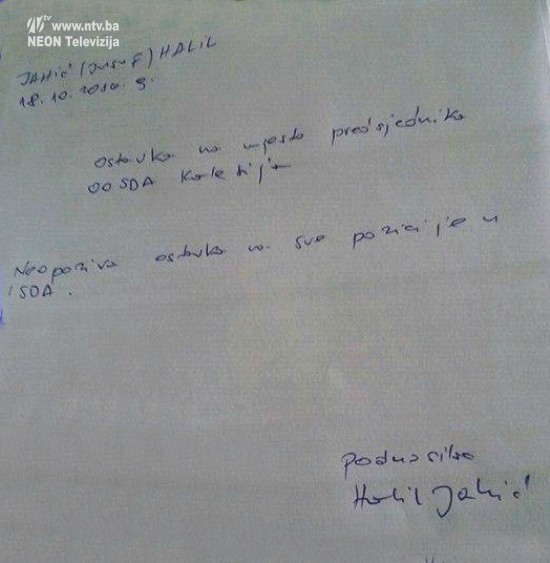 ntv www.ntv.ba
NEON Televizija
JAHIĆ (Jusuf) HALIL
18.10.2016 g.
ostavka na mjesto predsjednika
OO SDA Kalesija
Neopoziva ostavka na sve pozicije u
SDA.
podnosilac
Halil Jahić